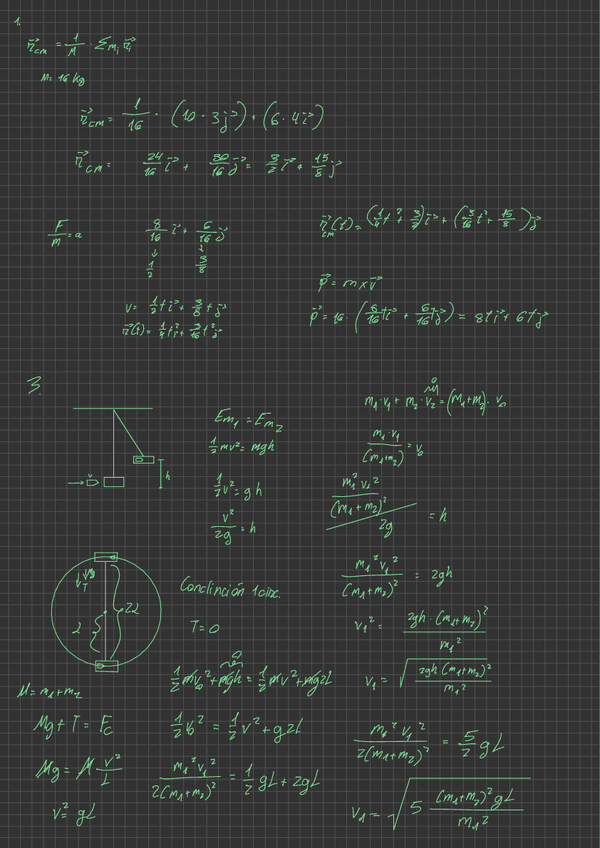 1.
r⃗cm = 1/M · Σ mᵢ r⃗ᵢ
M = 16 Kg
r⃗cm = 1/16 · (10 · 3j⃗) + (6 · 4i⃗)
r⃗cm = 24/16 i⃗ + 30/16 j⃗ = 3/2 i⃗ + 15/8 j⃗
F/m = a
8/16 i⃗ + 6/16 j⃗
↓ 1/2
↓ 3/8
v = 1/2 t i⃗ + 3/8 t j⃗
r⃗(t) = 1/4 t² i⃗ + 3/16 t² j⃗
r⃗cm(t) = (1/4 t² + 3/2) i⃗ + (3/16 t² + 15/8) j⃗
p⃗ = m x v⃗
p⃗ = 16 · (8/16 t i⃗ + 6/16 t j⃗) = 8t i⃗ + 6t j⃗
3.
v
h
Em₁ = Em₂
1/2 mv² = mgh
1/2 v² = gh
v²/2g = h
m₁ · v₁ + m₂ · v₂ = (m₁ + m₂) · v₀
0
m₁ · v₁/(m₁ + m₂) = v₀
m₁² v₁²/(m₁ + m₂)² / 2g = h
m₁² v₁²/(m₁ + m₂)² = 2gh
v₁² = 2gh · (m₁ + m₂)²/m₁²
v₁ = √(2gh (m₁ + m₂)²/m₁²)
T
2
2L
M = m₁ + m₂
Mg + T = Fc
Mg = M v²/L
v² = gL
T = 0
0
1/2 mv₀² + mgh = 1/2 mv² + mg2L
1/2 v₀² = 1/2 v² + g2L
m₁² v₁²/2(m₁ + m₂)² = 1/2 gL + 2gL
m₁² v₁²/2(m₁ + m₂)² = 5/2 gL
v₁ = √(5 (m₁ + m₂)² gL/m₁²)